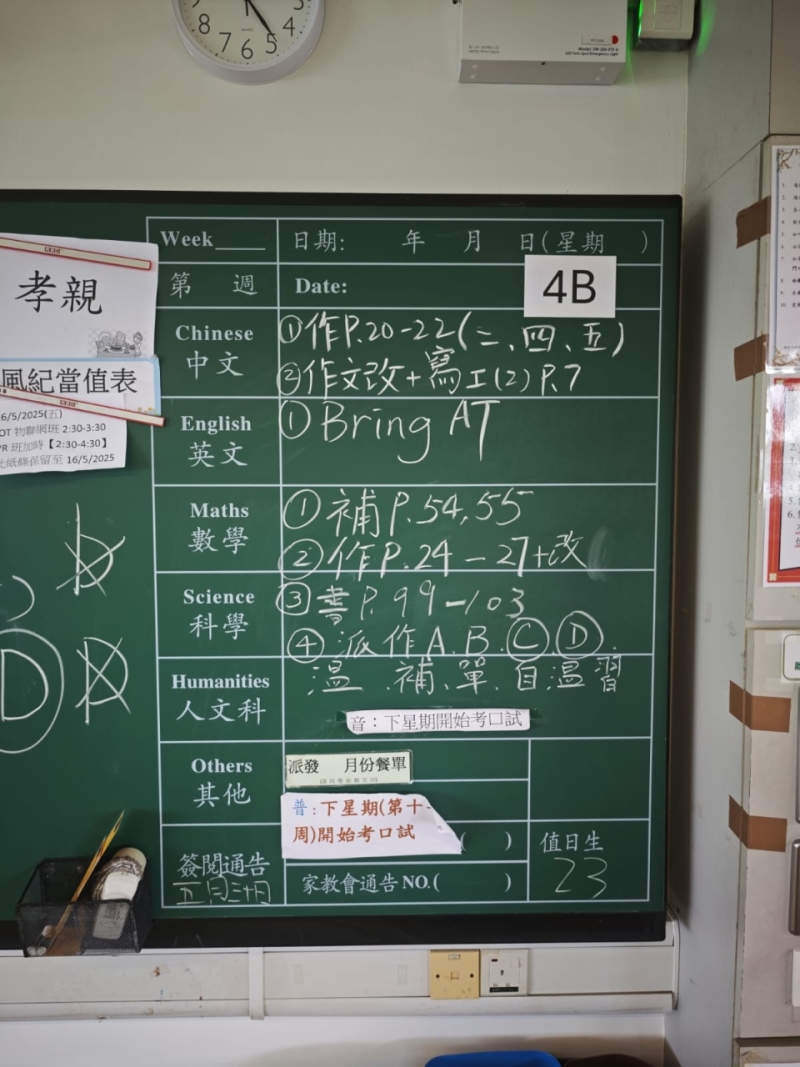 8 7 6 5 4
孝親
風紀當值表
16/5/2025(五)
OT 物聯網班 2:30-3:30
PR 班加時【2:30-4:30】
此紙條保留至 16/5/2025
b
D
Week____ 日期: 年 月 日(星期 )
第 週 Date:
4B
Chinese
中文
①作P.20-22(二、四、五)
②作文改+寫工(2) P.7
English
英文
①Bring AT
Maths
數學
①補P.54,55
②作P.24-27+改
Science
科學
③書P.99-103
④派作A.B.Ⓒ.Ⓓ.
Humanities
人文科
溫.補.單.自溫習
音：下星期開始考口試
Others
其他
派發 月份餐單
普:下星期(第十
周)開始考口試
( )
簽閱通告
五月三十日
家教會通告 NO.( )
值日生
23